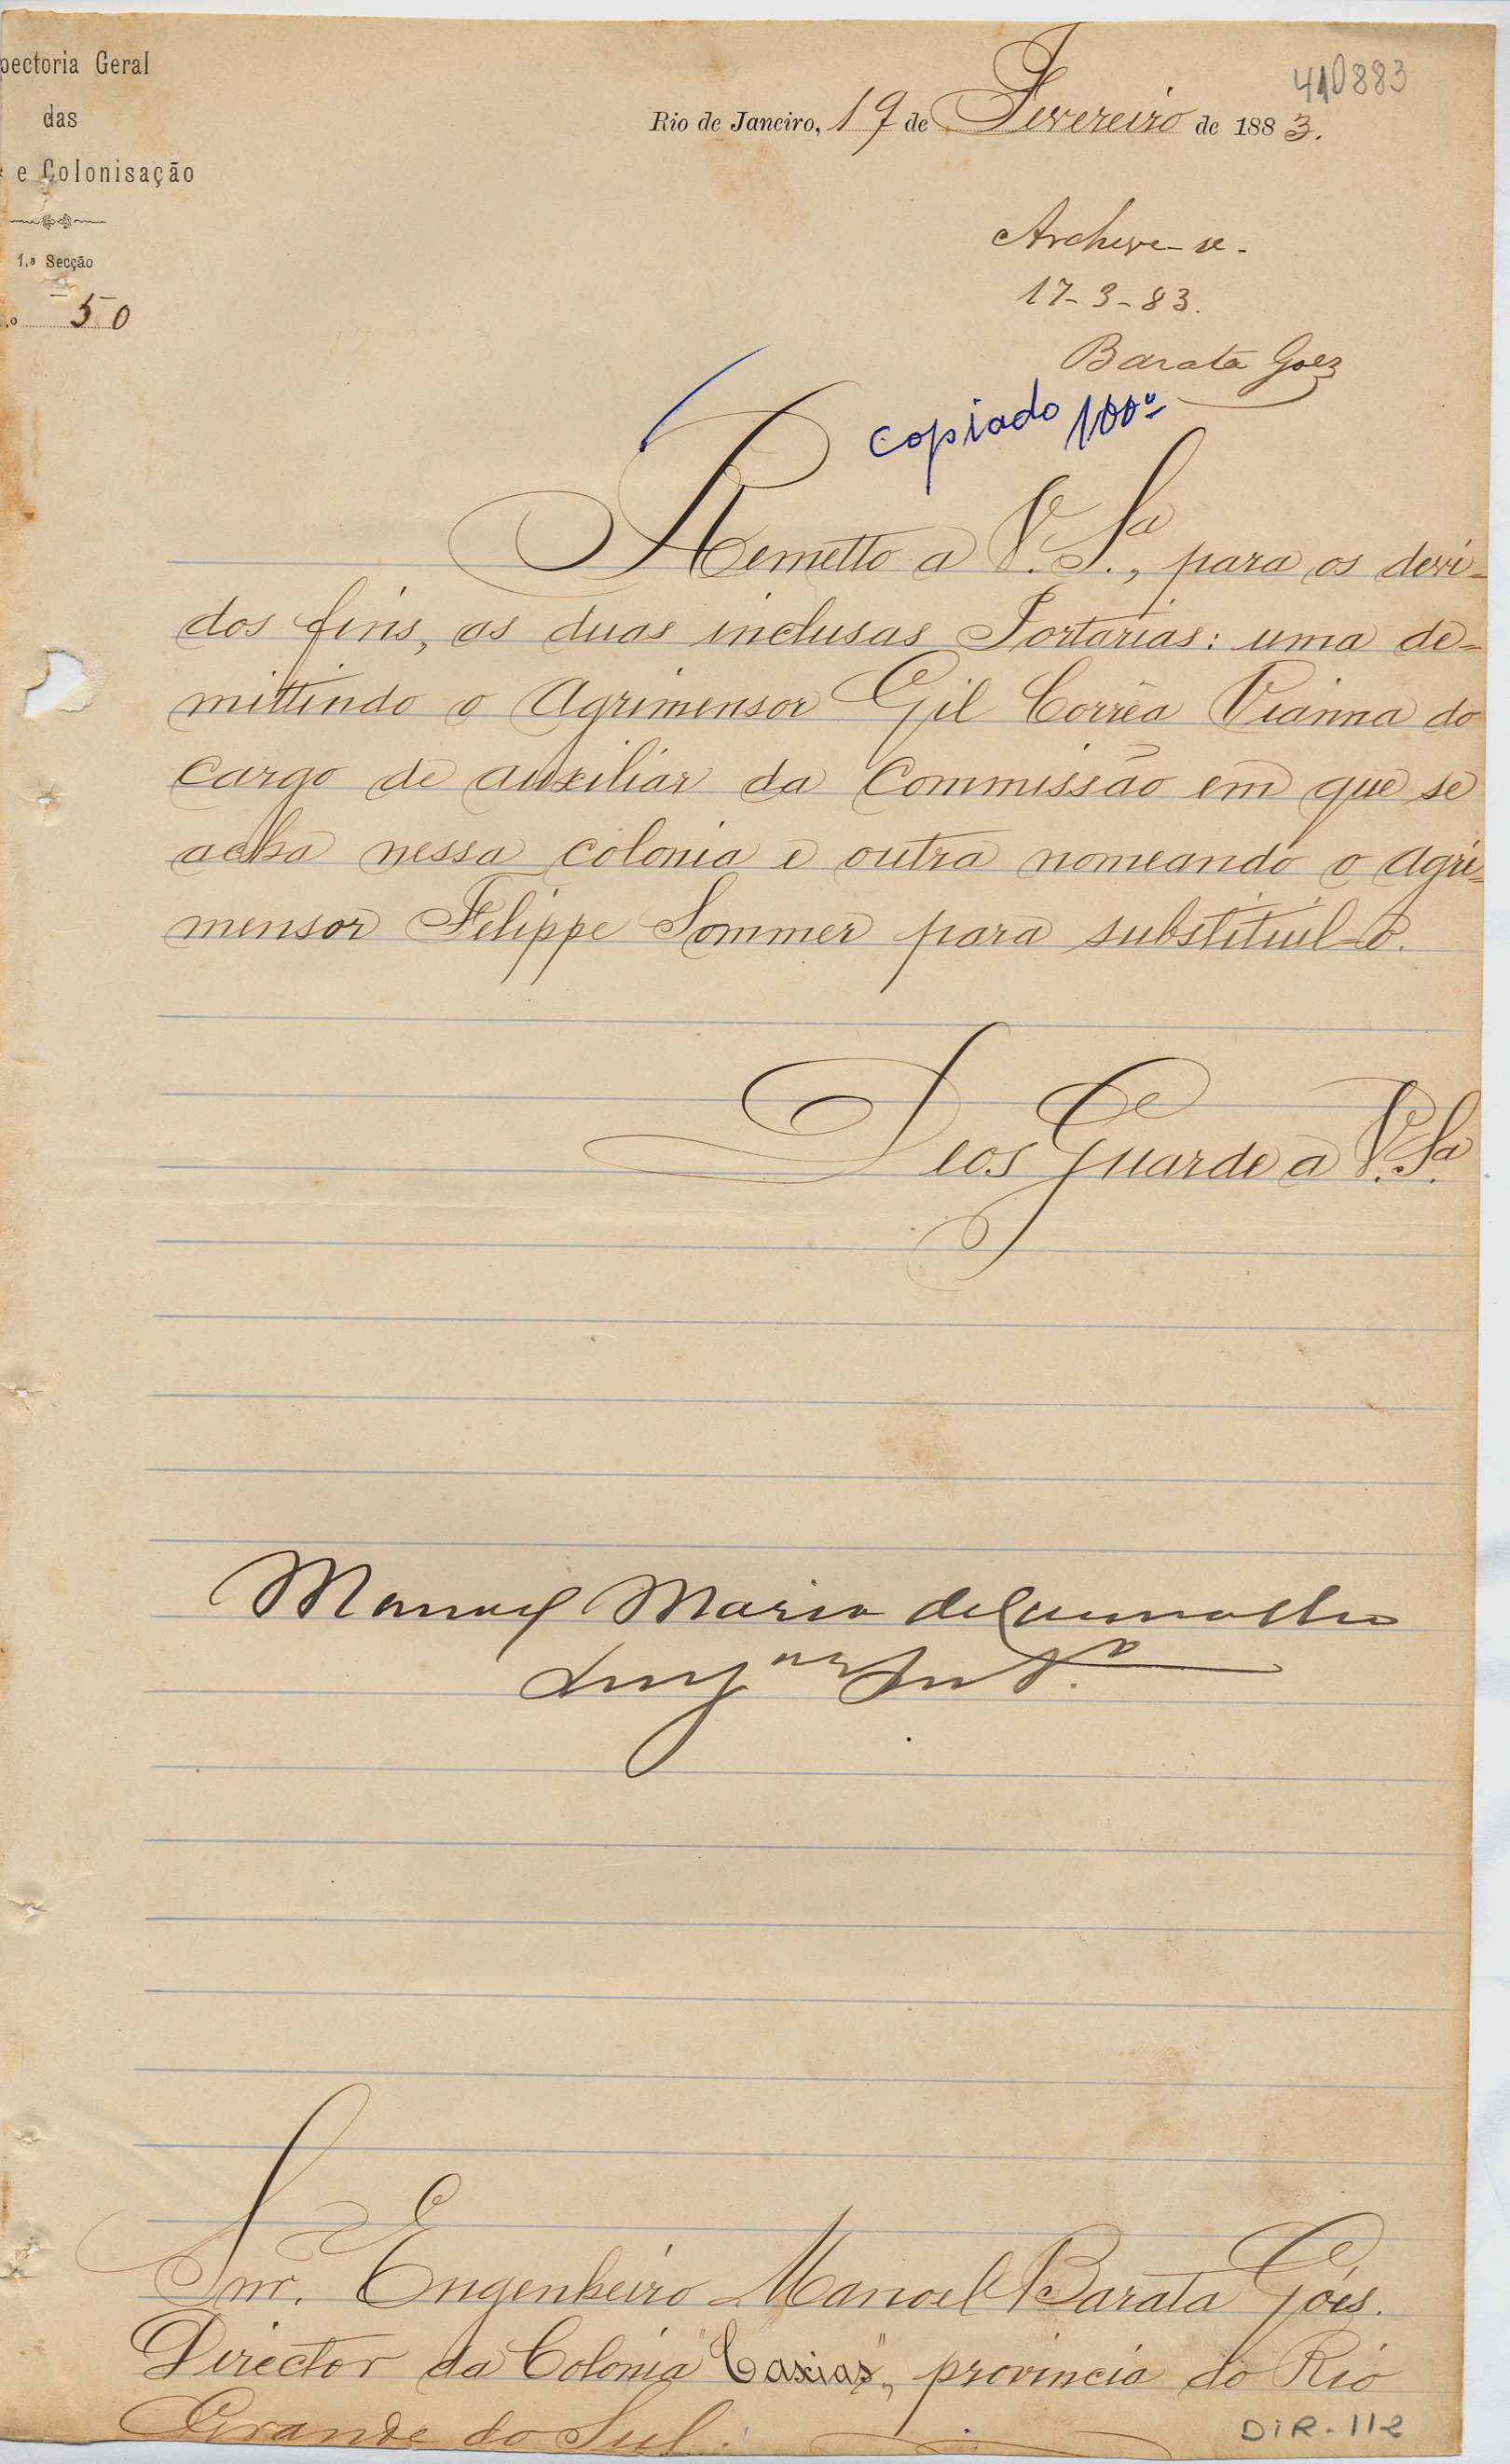 pectoria Geral
das
e Colonisação
1.ª Secção
.º 50
410883
Rio de Janeiro, 19 de Fevereiro de 1883.
Archive-se.
17-3-83.
Barata Goez
copiado
Remetto a V. Sª., para os devi-
dos fins, as duas inclusas Portarias: uma de-
mittindo o Agrimensor Gil Corrêa Vianna do
cargo de auxiliar da Commissão em que se
acha nessa colonia e outra nomeando o Agri-
mensor Felippe Sommer para substituil-o.
Deos Guarde a V. Sª.
Manoel Maria de Carvalho
Snr. Engenheiro Manoel Barata Góes.
Director da Colonia "Caxias", provincia do Rio
Grande do Sul.
DIR-112